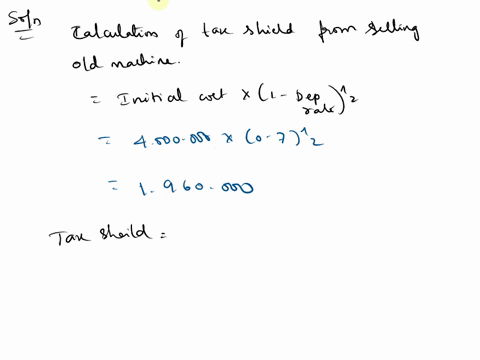 Soln Calculation of tax shield from selling
old machine.
= Initial cost × (1 - Dep rate)^2
= 4.000.000 × (0.7)^2
= 1.960.000
Tax sheild =